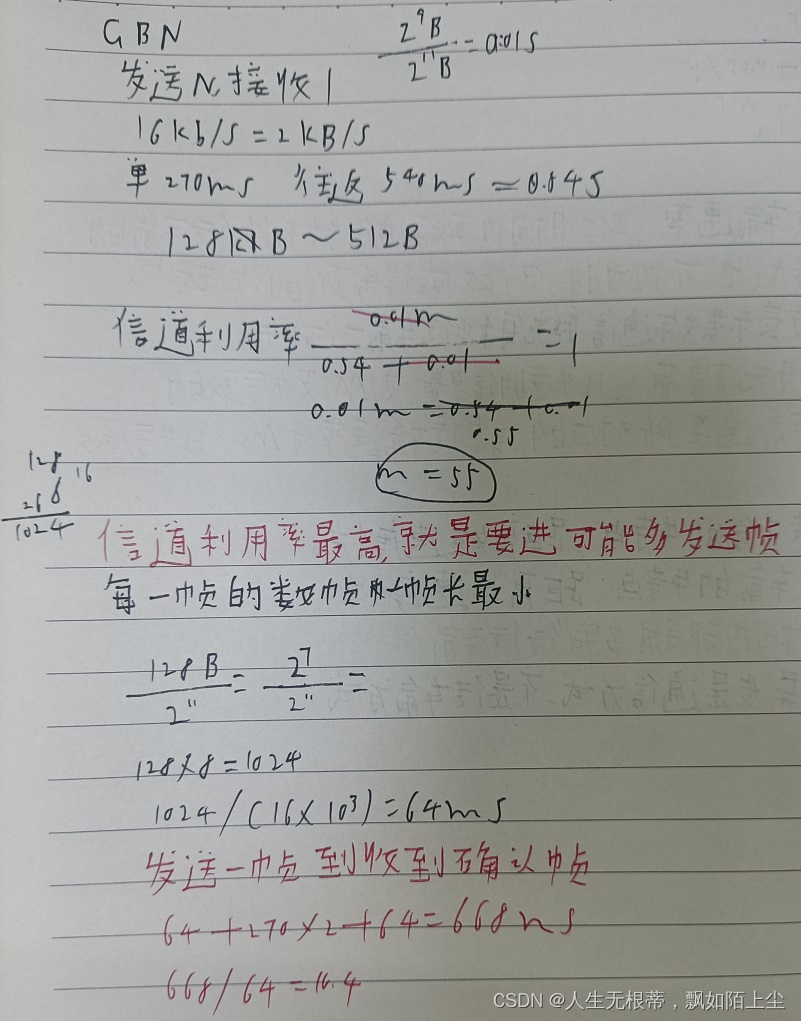 GBN
2⁹B / 2¹¹B = 0.01s
发送N,接收1
16kb/s = 2KB/s
单270ms 往返 540ms = 0.54s
128B ~ 512B
信道利用率 0.01m / 0.54 + 0.01 = 1
0.01m = 0.54 + 0.01
0.55
m = 55
128 16
6
1024
信道利用率最高,就是要进可能多发送帧
每一帧的数帧帧长最小
128B / 2¹¹ = 2⁷ / 2¹¹ =
128×8=1024
1024/(16×10³)=64ms
发送一帧到收到确认帧
64+270×2+64=668ms
668/64=10.4
CSDN @人生无根蒂，飘如陌上尘